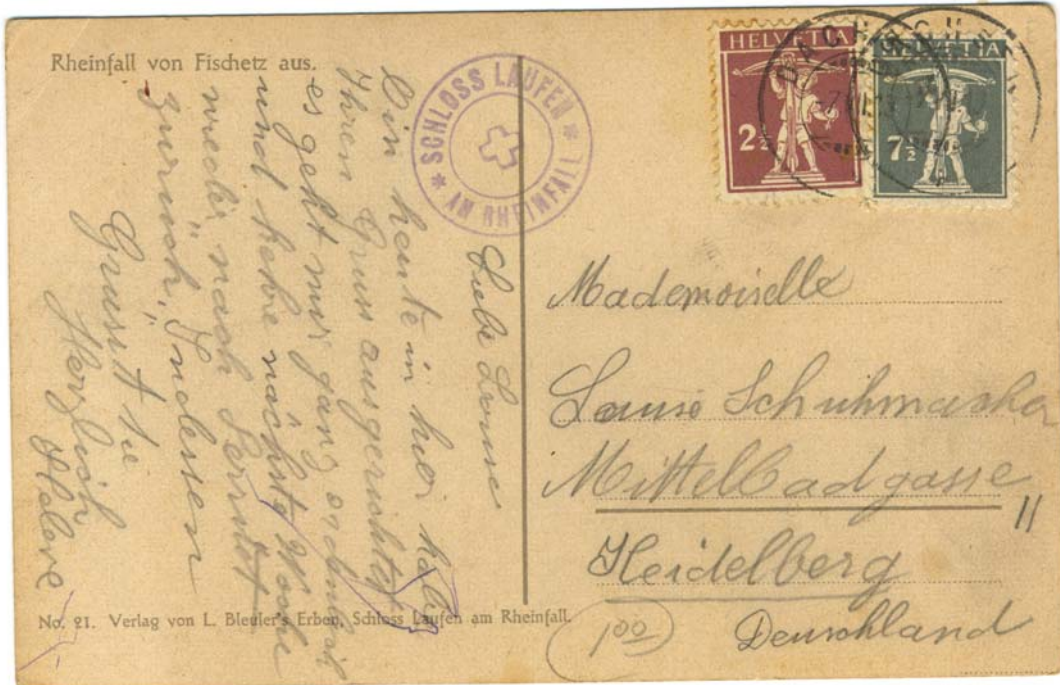 Rheinfall von Fischetz aus.
* SCHLOSS LAUFEN *
AM RHEINFALL
HELVETIA
2½
HELVETIA
7½
DACHSEN
Liebe Louise
Bin heute in hier habe
Ihren Gruss ausgerichtet
es geht mir ganz ordentlich
und kehre nächste Woche
wieder nach
zurück, Indessen
Grüsst Sie
Herzlich
Mademoiselle
Louise Schuhmacher
Mittelbadgasse 11
Heidelberg
Deuschland
100
No. 21. Verlag von L. Bleuler's Erben, Schloss Laufen am Rheinfall.